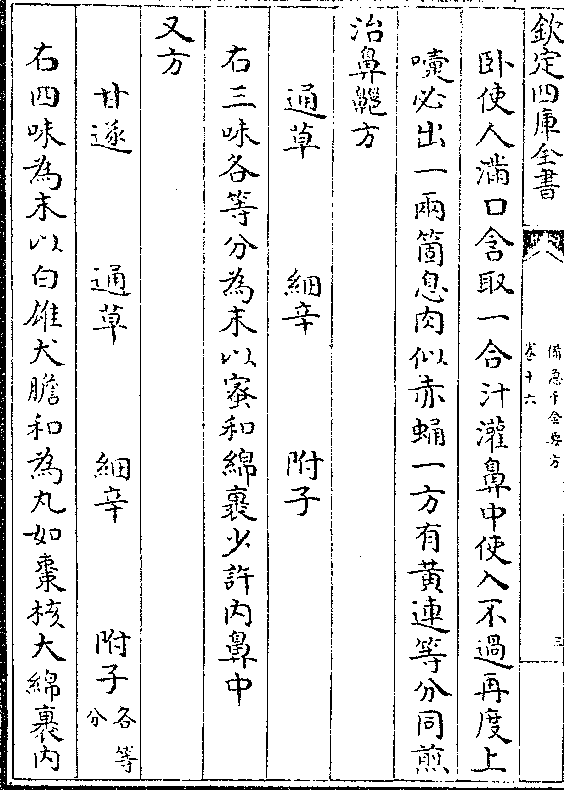 欽定四庫全書
備急千金要方
卷十六
三
卧使人滿口含取一合汁灌鼻中使入不過再度上
嚏必出一兩箇息肉似赤蛹一方有黃連等分同煎
治鼻齆方
通草 細辛 附子
右三味各等分為末以蜜和綿裹少許内鼻中
又方
甘遂 通草 細辛 附子各等分
右四味為末以白雄犬膽和為丸如棗核大綿裹内